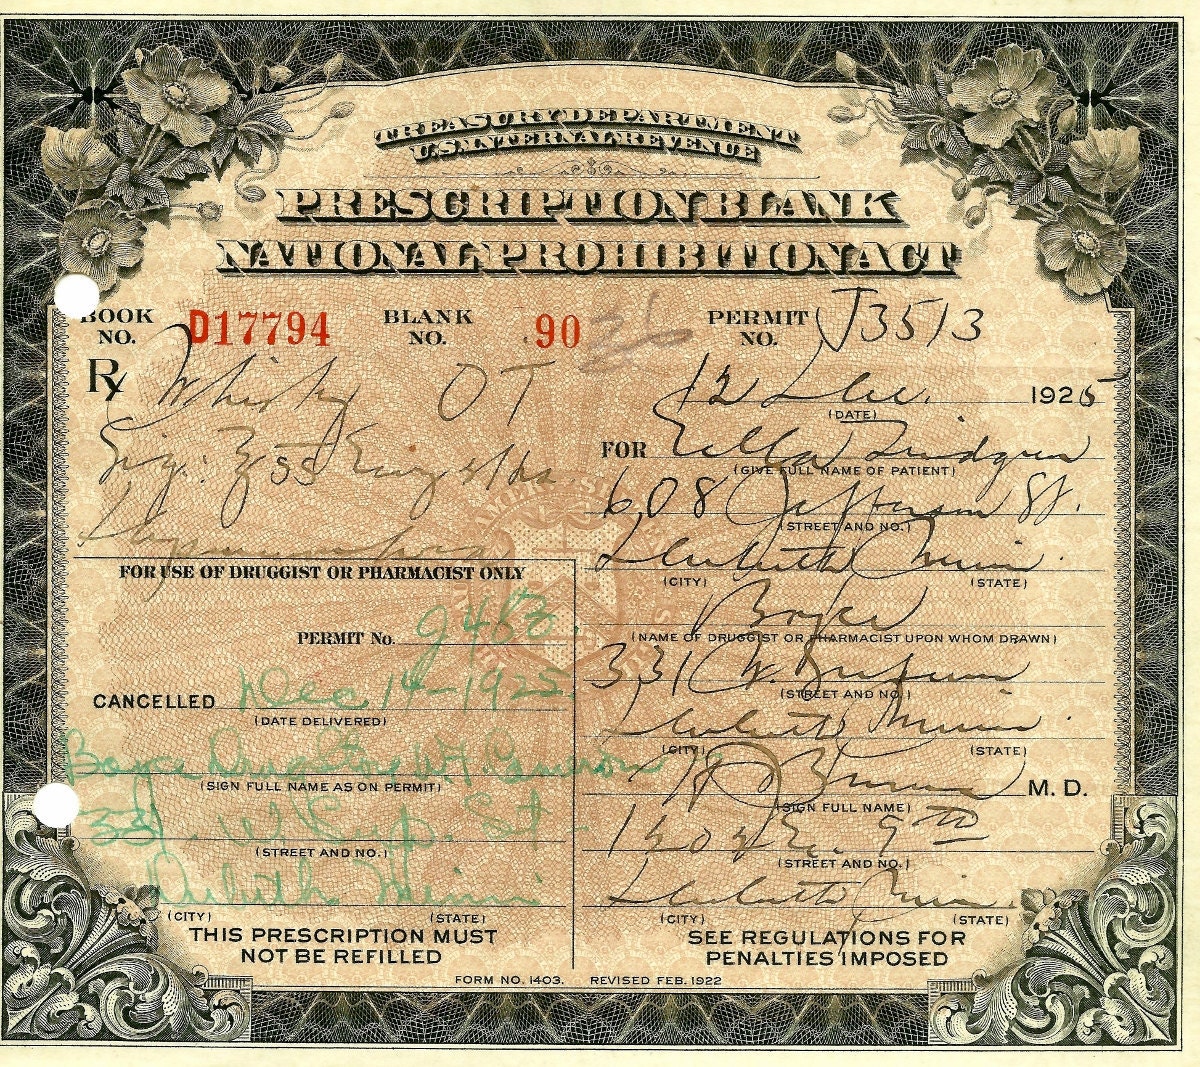 TREASURY DEPARTMENT
U.S. INTERNAL REVENUE
PRESCRIPTION BLANK
NATIONAL PROHIBITION ACT
BOOK NO. D17794 BLANK NO. 90 36 PERMIT NO. J3513
Rx Whisky OT
Sig:
12 Dec. 1925
(DATE)
FOR Ella
(GIVE FULL NAME OF PATIENT)
608 Jefferson St.
(STREET AND NO.)
Duluth Minn.
(CITY) (STATE)
Boyce
(NAME OF DRUGGIST OR PHARMACIST UPON WHOM DRAWN)
331 W. Superior
(STREET AND NO.)
Duluth Minn.
(CITY) (STATE)
M. D.
(SIGN FULL NAME)
E. 9th
(STREET AND NO.)
Duluth Minn.
(CITY) (STATE)
SEE REGULATIONS FOR
PENALTIES IMPOSED
FOR USE OF DRUGGIST OR PHARMACIST ONLY
PERMIT NO.
CANCELLED Dec 14-1925
(DATE DELIVERED)
Boyce Drug Store
(SIGN FULL NAME AS ON PERMIT)
331 W Sup. St.
(STREET AND NO.)
Duluth Minn
(CITY) (STATE)
THIS PRESCRIPTION MUST
NOT BE REFILLED
FORM NO. 1403. REVISED FEB. 1922